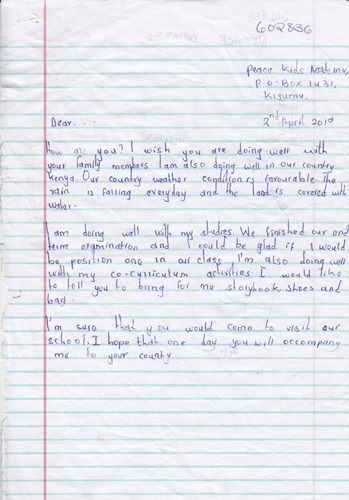 602836
Peace Kids Academy,
P.O. Box 1431,
Kisumu.
2nd April 2019
Dear. . .
How are you? I wish you are doing well with
your family members. I am also doing well in our country
Kenya. Our country weather condition is favourable. The
rain is falling everyday and the land is covered with
water.
I am doing well with my studies. We finished our end
term examination and I could be glad if I would
be position one in our class. I'm also doing well
with my co-curriculum activities. I would like
to tell you to bring for me storybook, shoes and
bag.
I'm sure that you would come to visit our
school. I hope that one day you will accompany
me to your county